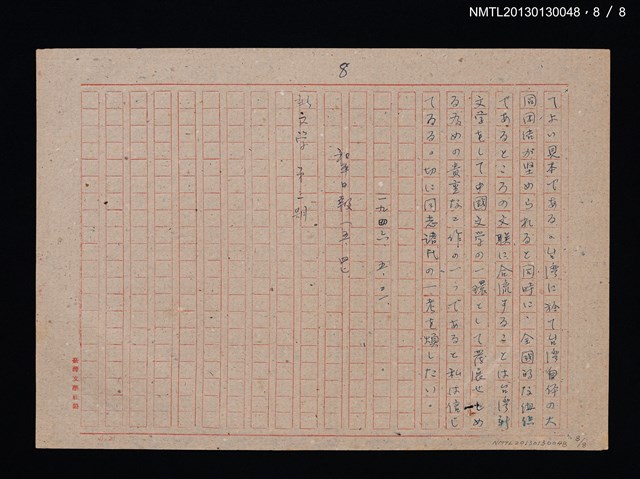 NMTL20130130048，8 / 8
8
てよい見本である。台湾に於て台湾自体の大
同団結が堅められると同時に、全國的な組織
であるところの文聯に合流することは台湾新
文学をして中國文学の一環として発展せしめ
る為めの貴重な工作の一つであると私は信じ
てゐる。切に同志諸氏の一考を煩したい。
一九四六、五、
和平日報
新文学 第二期
NMTL20130130048
8/8